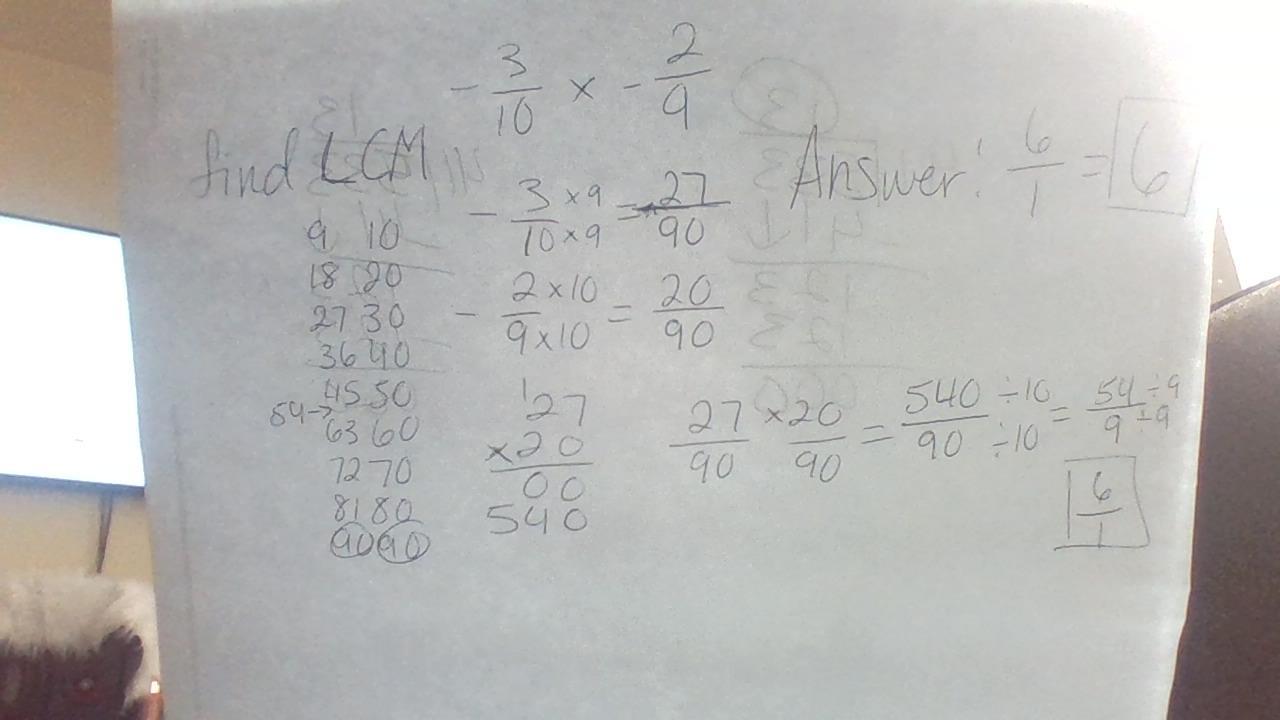 - 3/10 × - 2/9
find LCM
9 10
18 20
27 30
36 40
45 50
54→
63 60
72 70
81 80
90 90
- 3×9/10×9 = 27/90
- 2×10/9×10 = 20/90
1
27
×20
00
540
27/90 × 20/90 = 540÷10/90÷10 = 54÷9/9÷9
6/1
Answer: 6/1 = 6